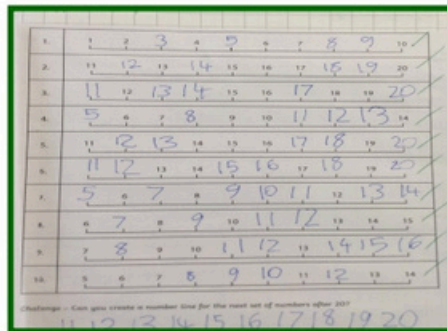 1. 1 2 3 4 5 6 7 8 9 10
2. 11 12 13 14 15 16 17 18 19 20
3. 11 12 13 14 15 16 17 18 19 20
4. 5 6 7 8 9 10 11 12 13 14
5. 11 12 13 14 15 16 17 18 19 20
6. 11 12 13 14 15 16 17 18 19 20
7. 5 6 7 8 9 10 11 12 13 14
8. 6 7 8 9 10 11 12 13 14 15
9. 7 8 9 10 11 12 13 14 15 16
10. 5 6 7 8 9 10 11 12 13 14
Challenge – Can you create a number line for the next set of numbers after 20?
11 12 13 14 15 16 17 18 19 20